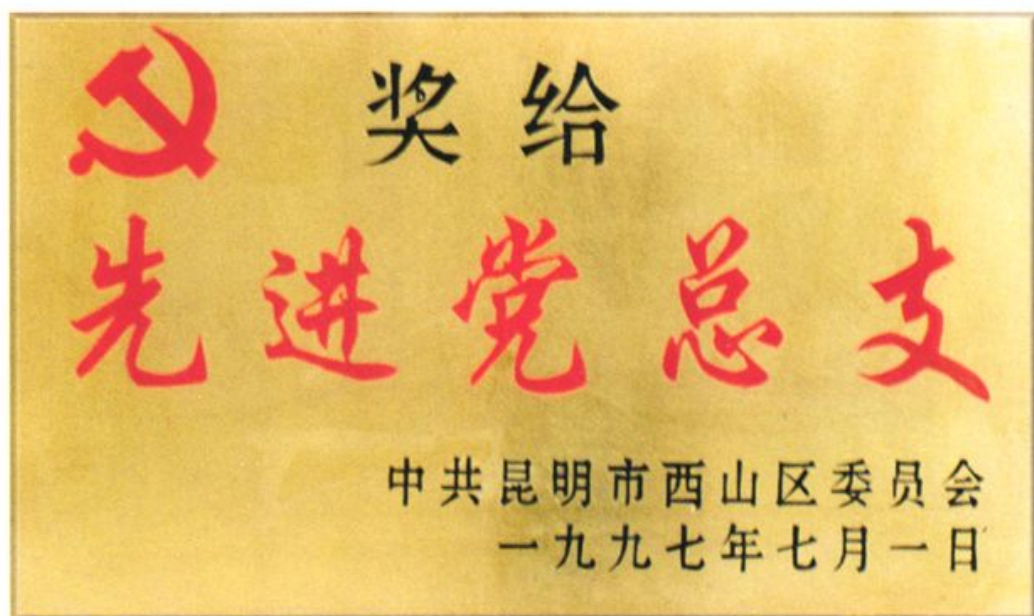 奖给
先进党总支
中共昆明市西山区委员会
一九九七年七月一日